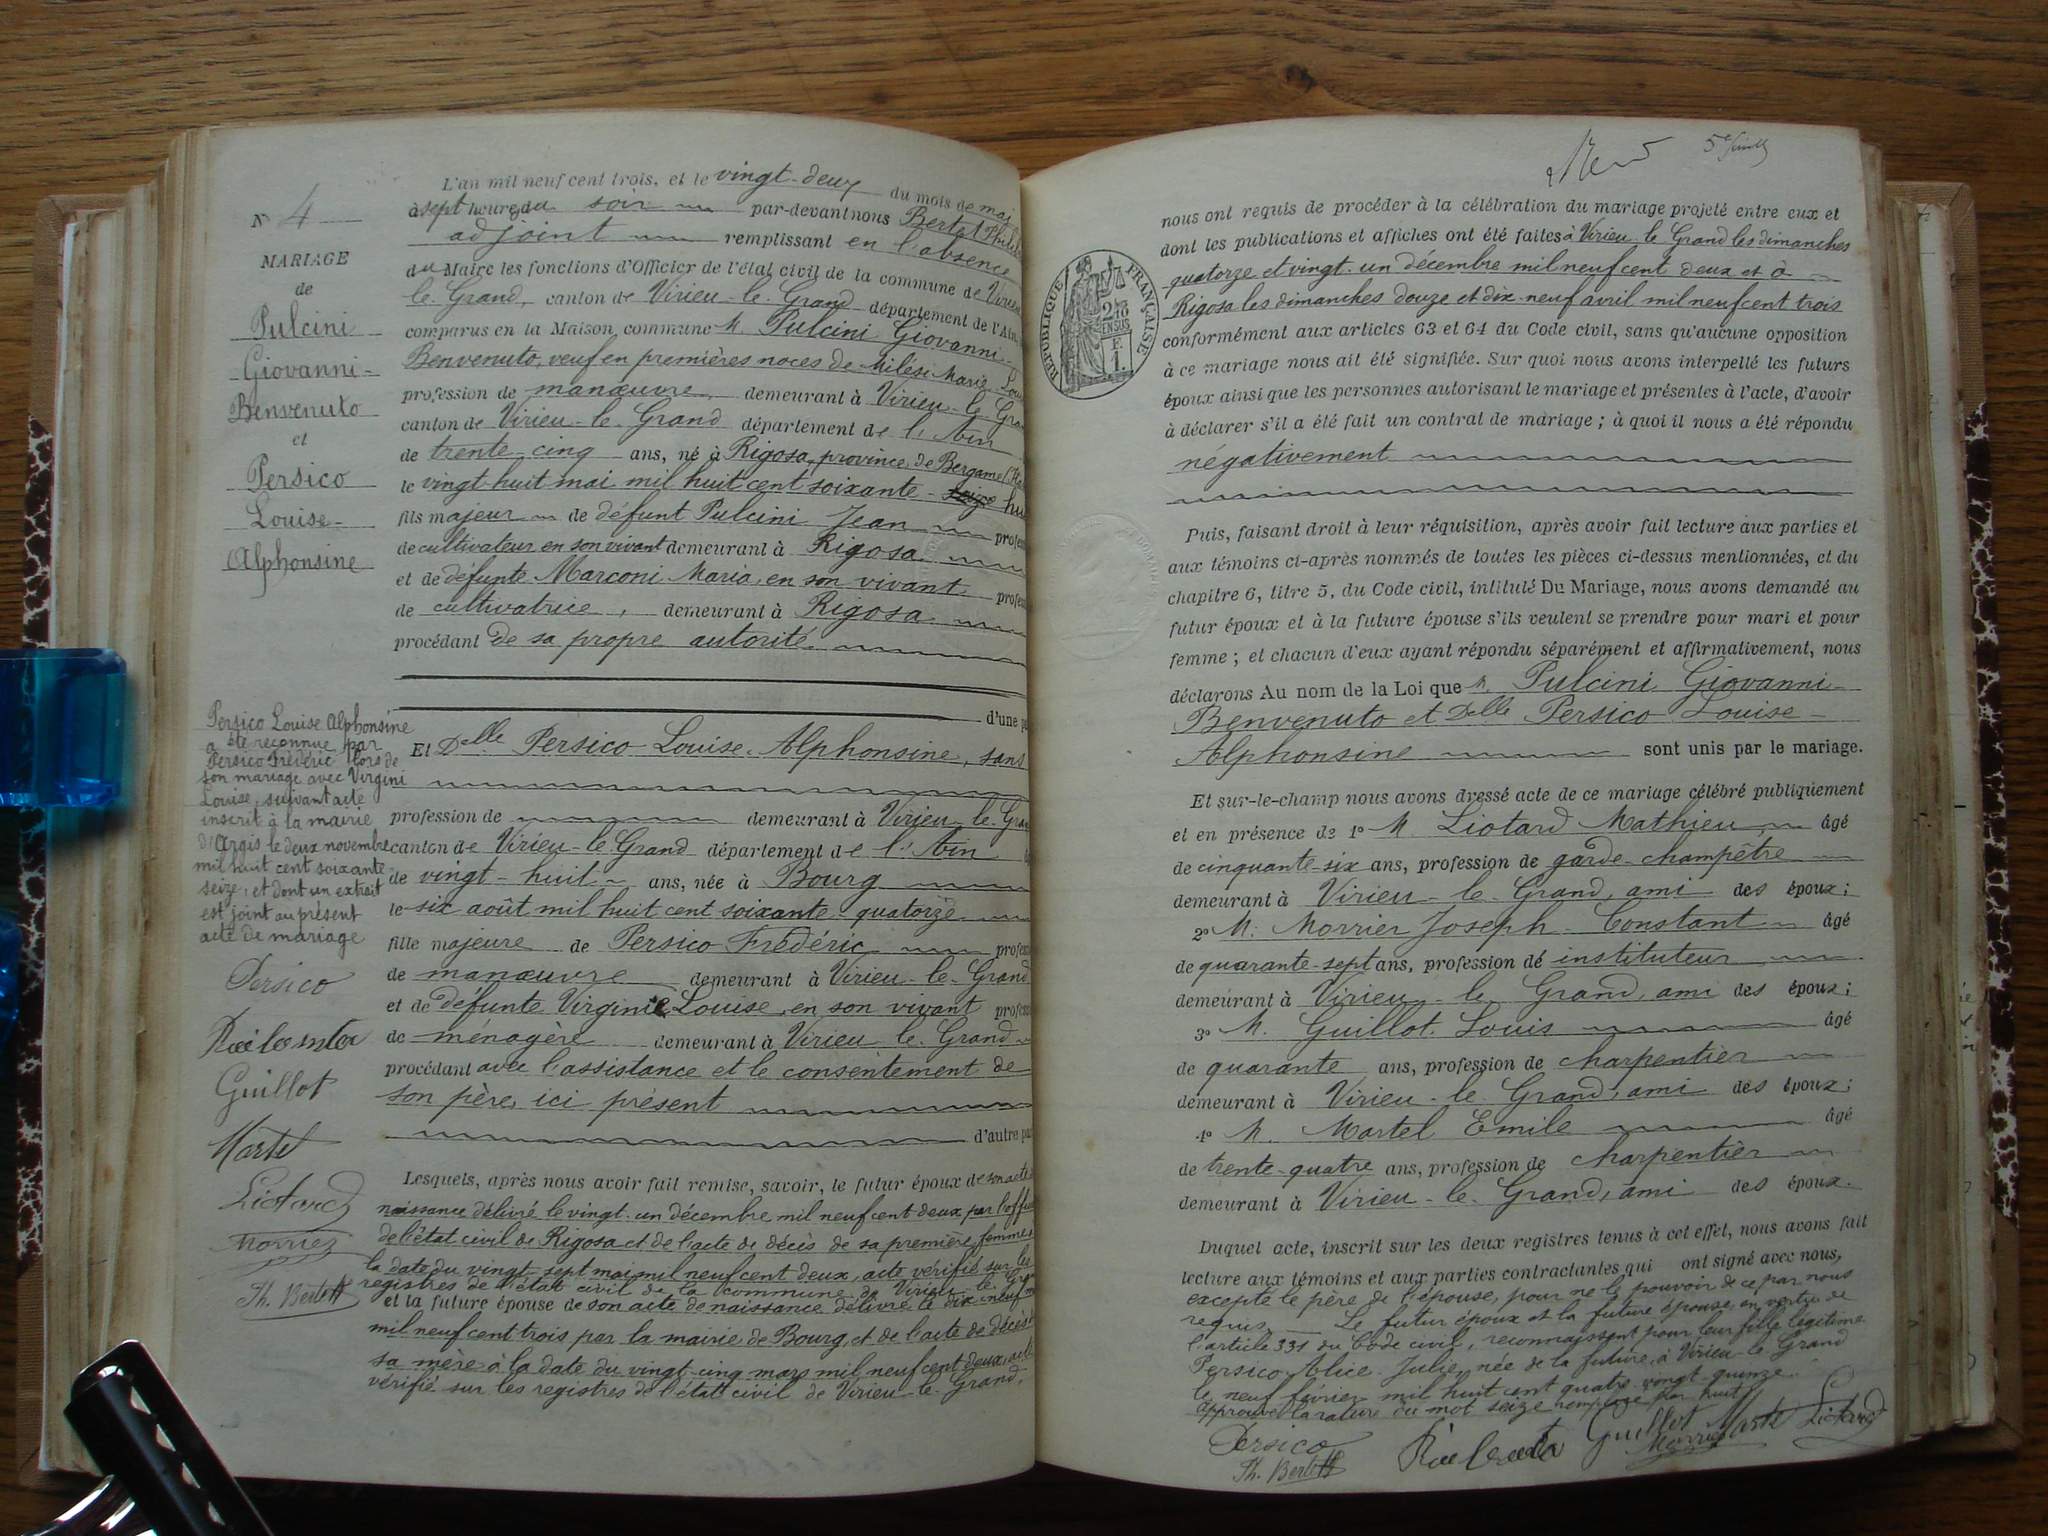 N° 4
MARIAGE
de
Pulcini
Giovanni
Benvenuto
et
Persico
Louise
Alphonsine
Persico Louise Alphonsine
a été reconnue par
Persico Frédéric lors de
son mariage avec Virgini
Louise, suivant acte
inscrit à la mairie
d'Argis le deux novembre
mil huit cent soixante
seize, et dont un extrait
est joint au présent
acte de mariage
Persico
Guillot
Martel
Liotard
Morrier
Th. Bertet
L'an mil neuf cent trois, et le vingt-deux du mois de mai
à sept heures du soir par-devant nous Bertet
adjoint remplissant en l'absence
du Maire les fonctions d'Officier de l'état civil de la commune de Virieu
le-Grand, canton de Virieu-le-Grand département de l'Ain,
comparus en la Maison commune M. Pulcini Giovanni
Benvenuto, veuf en premières noces de Milési Marie
profession de manœuvre demeurant à Virieu-le-Gran
canton de Virieu-le-Grand département de l'Ain
de trente cinq ans, né à Rigosa, province de Bergame
le vingt huit mai mil huit cent soixante-seize hu
fils majeur de défunt Pulcini Jean profes
de cultivateur en son vivant demeurant à Rigosa
et de défunte Marconi Maria, en son vivant profes
de cultivatrice, demeurant à Rigosa
procédant de sa propre autorité
d'une pa
Et Delle Persico Louise-Alphonsine, sans
profession de demeurant à Virieu-le-Gran
canton de Virieu-le-Grand département de l'Ain
de vingt-huit ans, née à Bourg
le six août mil huit cent soixante-quatorze
fille majeure de Persico Frédéric profes
de manœuvre demeurant à Virieu-le-Grand
et de défunte Virginie Louise, en son vivant profes
de ménagère demeurant à Virieu-le-Grand
procédant avec l'assistance et le consentement de
son père, ici présent
d'autre par
Lesquels, après nous avoir fait remise, savoir, le futur époux de son acte
naissance délivré le vingt-un décembre mil neuf cent deux par l'offic
de l'état civil de Rigosa et de l'acte de décès de sa première femme
la date du vingt-sept mai mil neuf cent deux, acte vérifié sur les
registres de l'état civil de la commune de Virieu-le-Gran
et la future épouse de son acte de naissance délivré le dix neuf
mil neuf cent trois, par la mairie de Bourg, et de l'acte de décès
sa mère à la date du vingt-cinq mars mil neuf cent deux,
vérifié sur les registres de l'état civil de Virieu-le-Grand,
RÉPUBLIQUE FRANÇAISE
nous ont requis de procéder à la célébration du mariage projeté entre eux et
dont les publications et affiches ont été faites à Virieu-le-Grand les dimanches
quatorze et vingt-un décembre mil neuf cent deux et à
Rigosa les dimanches douze et dix-neuf avril mil neuf cent trois
conformément aux articles 63 et 64 du Code civil, sans qu'aucune opposition
à ce mariage nous ait été signifiée. Sur quoi nous avons interpellé les futurs
époux ainsi que les personnes autorisant le mariage et présentes à l'acte, d'avoir
à déclarer s'il a été fait un contrat de mariage ; à quoi il nous a été répondu
négativement
Puis, faisant droit à leur réquisition, après avoir fait lecture aux parties et
aux témoins ci-après nommés de toutes les pièces ci-dessus mentionnées, et du
chapitre 6, titre 5, du Code civil, intitulé Du Mariage, nous avons demandé au
futur époux et à la future épouse s'ils veulent se prendre pour mari et pour
femme ; et chacun d'eux ayant répondu séparément et affirmativement, nous
déclarons Au nom de la Loi que M. Pulcini Giovanni
Benvenuto et Delle Persico Louise
Alphonsine sont unis par le mariage.
Et sur-le-champ nous avons dressé acte de ce mariage célébré publiquement
et en présence de 1° M. Liotard Mathieu âgé
de cinquante-six ans, profession de garde-champêtre
demeurant à Virieu-le-Grand, ami des époux ;
2° M. Morrier Joseph-Constant âgé
de quarante-sept ans, profession de instituteur
demeurant à Virieu-le-Grand, ami des époux ;
3° M. Guillot Louis âgé
de quarante ans, profession de charpentier
demeurant à Virieu-le-Grand, ami des époux ;
4° M. Martel Emile âgé
de trente-quatre ans, profession de charpentier
demeurant à Virieu-le-Grand, ami des époux.
Duquel acte, inscrit sur les deux registres tenus à cet effet, nous avons fait
lecture aux témoins et aux parties contractantes qui ont signé avec nous,
excepté le père de l'épouse, pour ne le pouvoir de ce par nous
requis. Le futur époux et la future épouse, en vertu de
l'article 331 du Code civil, reconnaissent pour leur fille légitime
Persico Alice Julie, née de la future, à Virieu-le-Grand
le neuf février mil huit cent quatre-vingt-quinze.
Approuvé la rature du mot seize remplacé par huit
Persico Guillot Martel Liotard
Th. Bertet Morrier